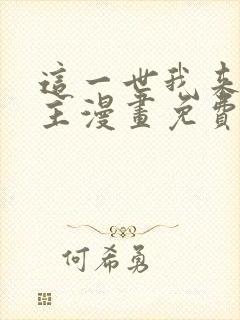 這一世我來
主漫畫免費
何希勇